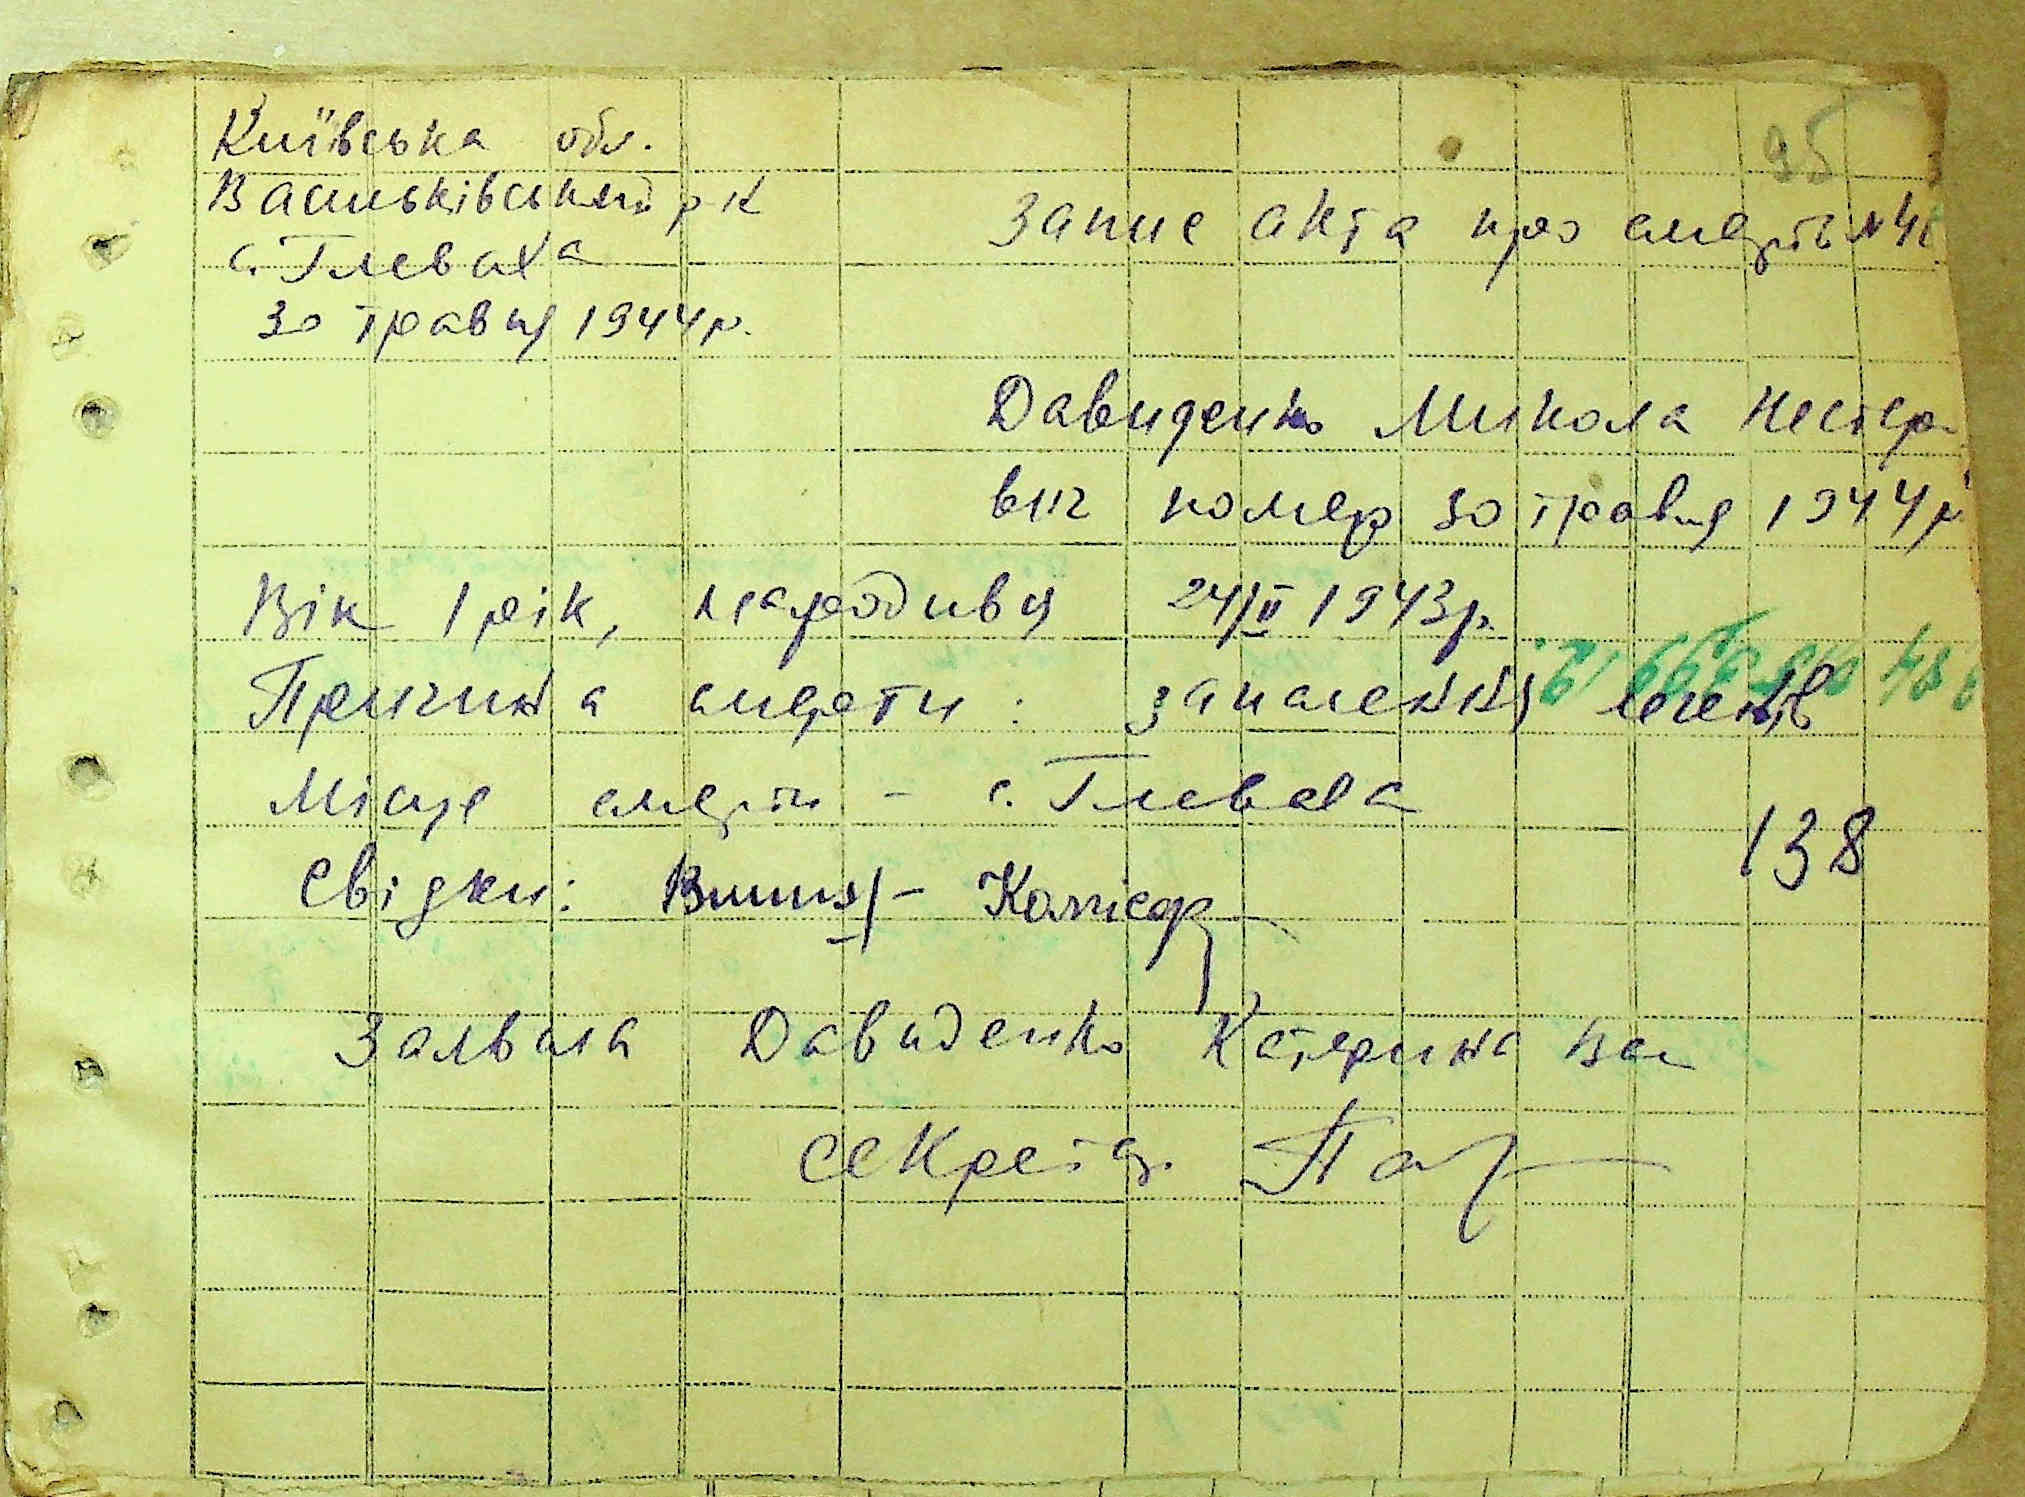 95
Київська обл.
Васильківський р-к
Запис акта про смерть №4
с. Глеваха
30 травня 1944 р.
Давиденко Микола Нестеро
вич помер 30 травня 1944 р.
Вік 1 рік, народився 24/II 1943 р.
Причина смерти: запалення легенів
Місце смерти - с. Глеваха
138
Свідки:
Заявила Давиденко Катерина Вас
Секретар